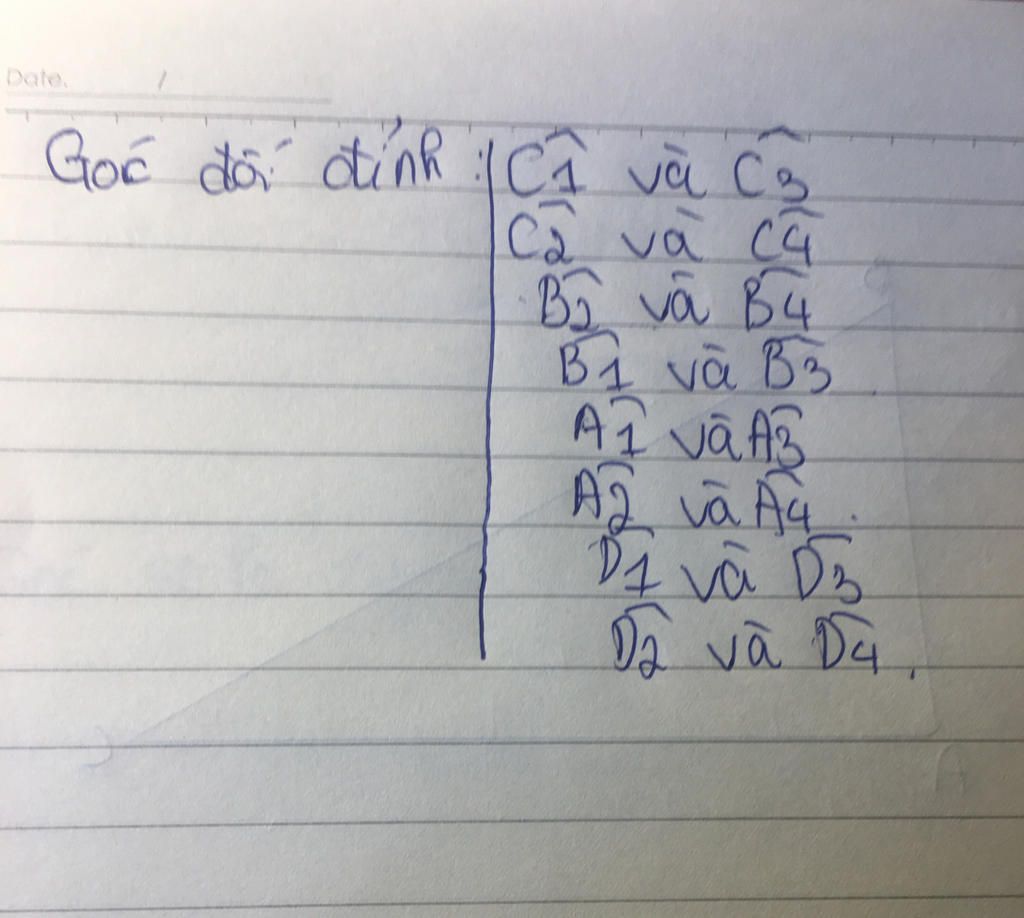 Date. /
Góc đối đỉnh : Ĉ1 và Ĉ3
Ĉ2 và Ĉ4
B̂2 và B̂4
B̂1 và B̂3
Â1 và Â3
Â2 và Â4.
D̂1 và D̂3
D̂2 và D̂4.